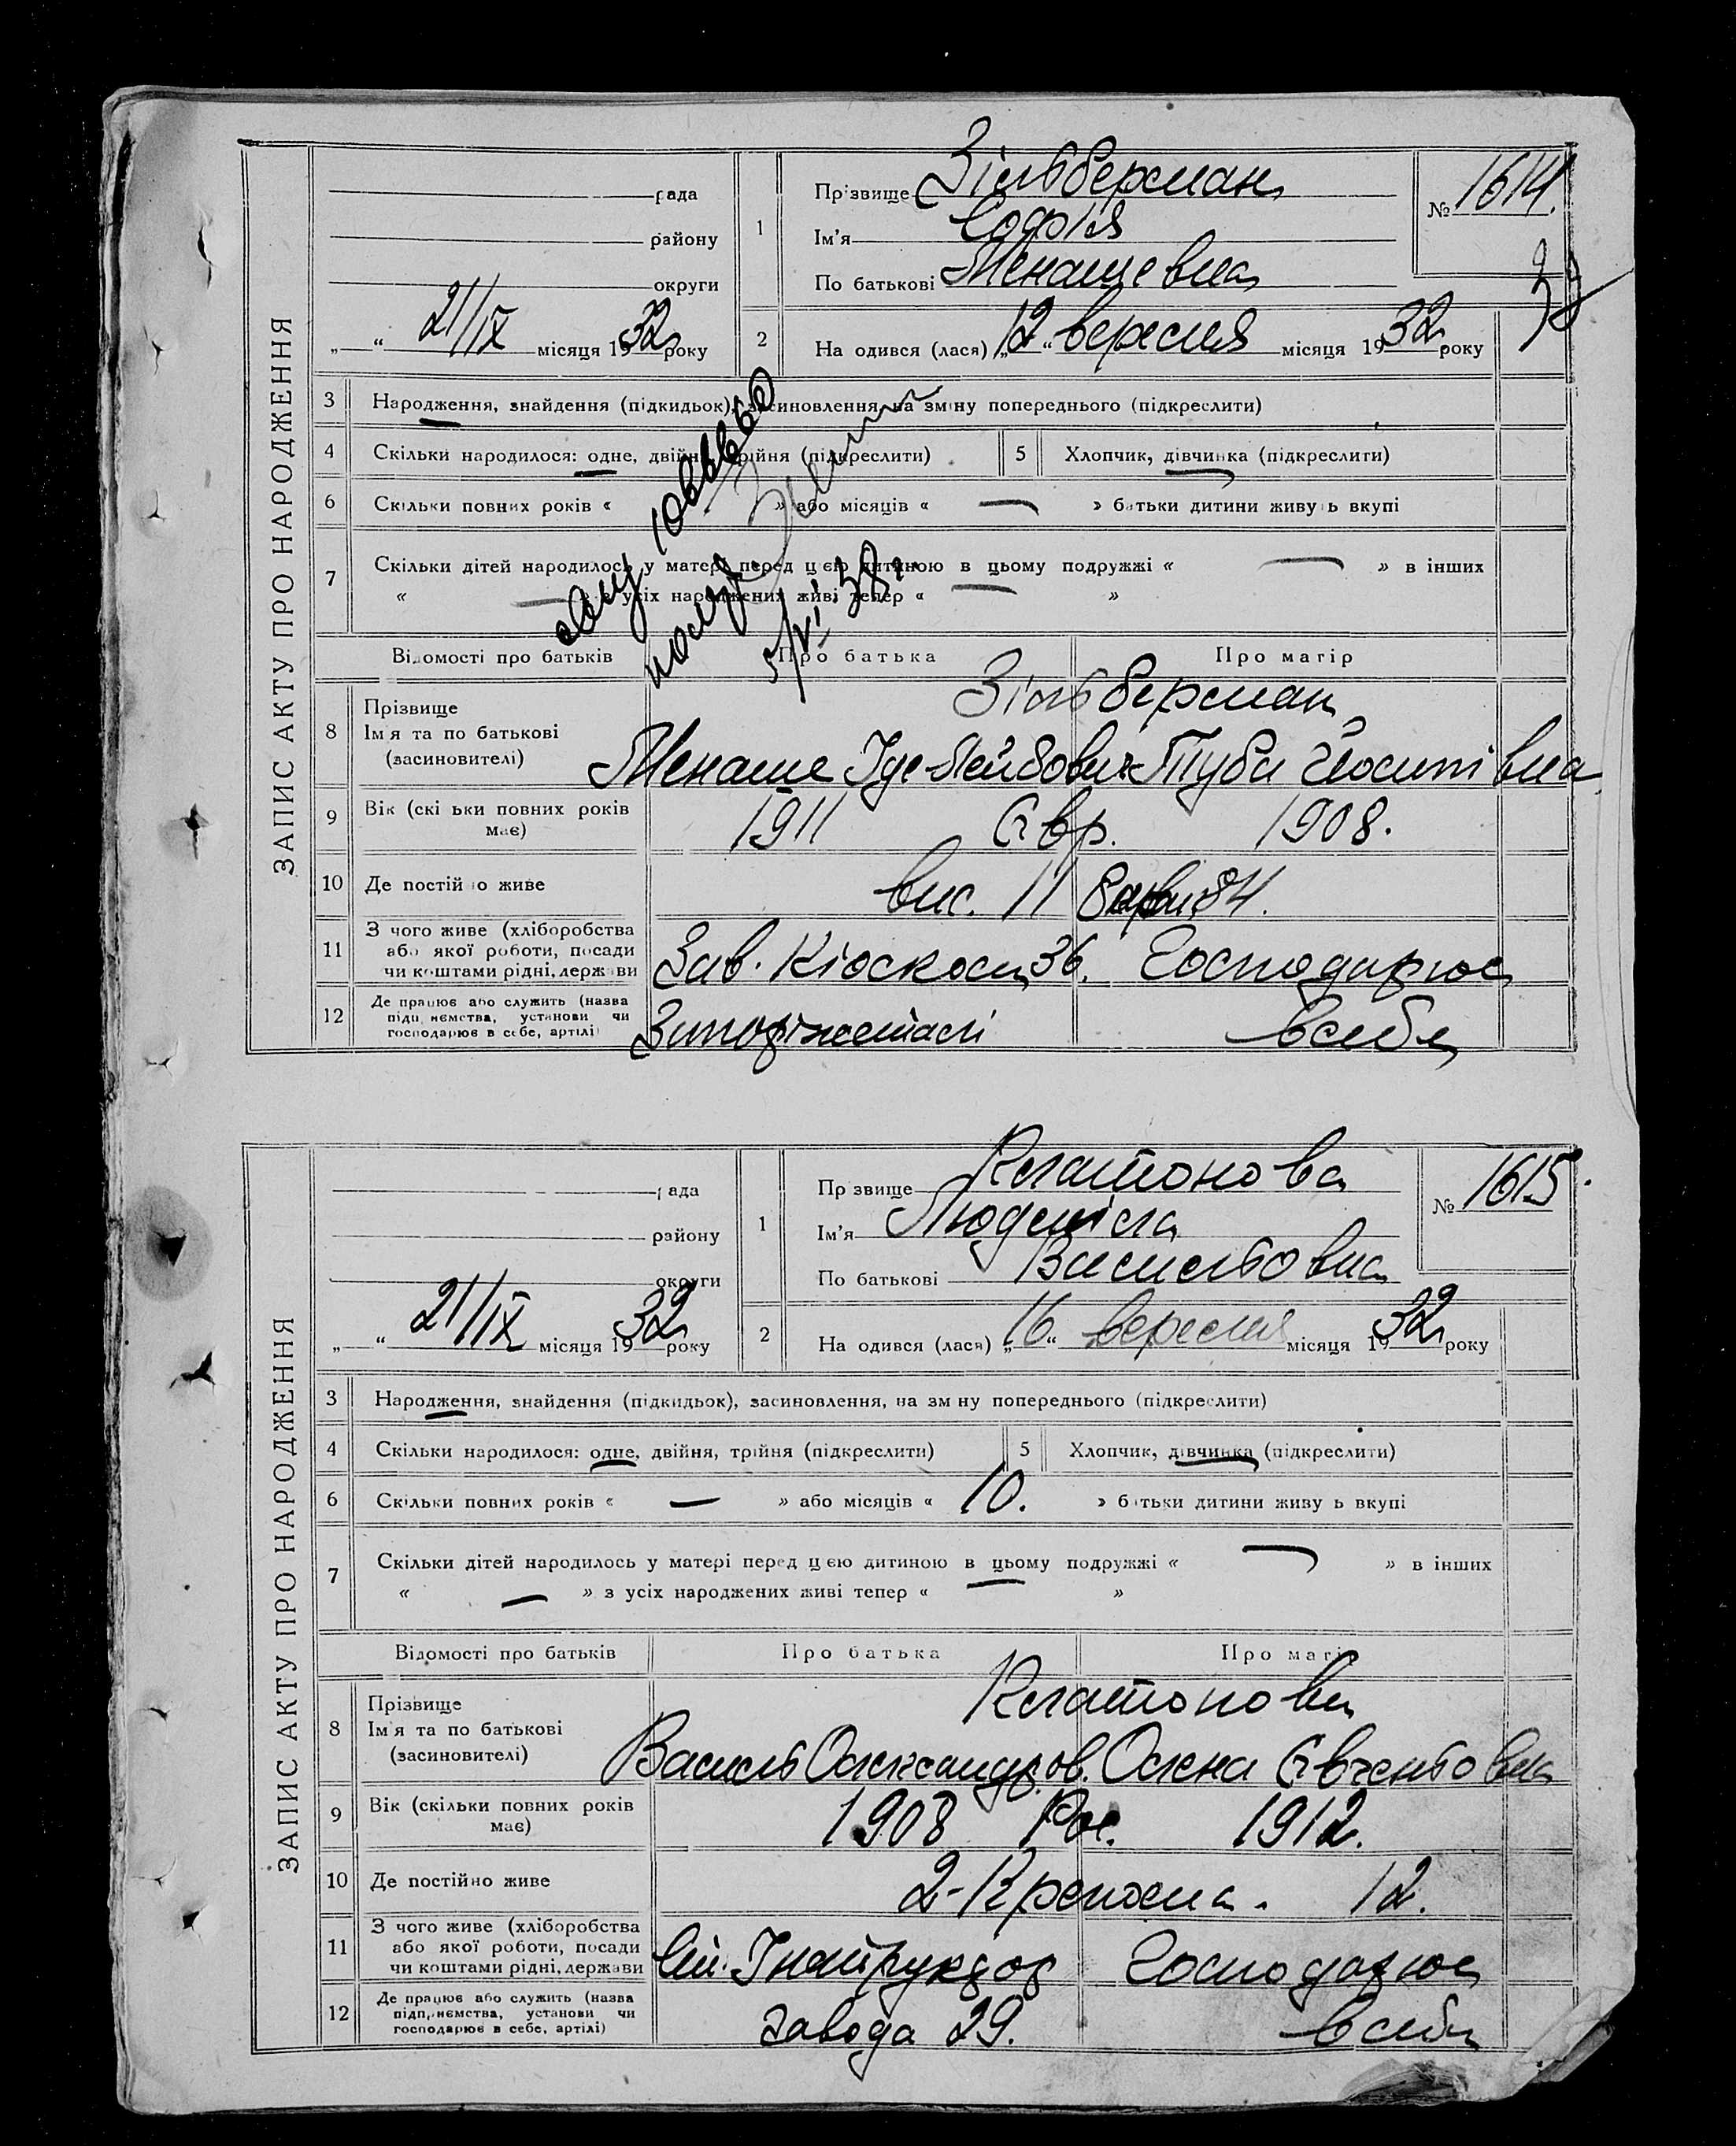 ЗАПИС АКТУ ПРО НАРОДЖЕННЯ
рада
району
округи
„ “ 21/IX місяця 1932 року
1
Прізвище Зільберман
Ім'я Софія
По батькові Менашевна
№ 1614.
2 На одився (лася) „12“ вересня місяця 1932 року
3 Народження, знайдення (підкидьок), засиновлення, на зміну попереднього (підкреслити)
4 Скільки народилося: одне, двійня, трійня (підкреслити) 5 Хлопчик, дівчинка (підкреслити)
6 Скільки повних років « » або місяців « — » батьки дитини живуть вкупі
7 Скільки дітей народилось у матері перед цією дитиною в цьому подружжі « — » в інших
« — » з усіх народжених живі тепер « — »
5/VI 38 г.
Відомості про батьків Про батька Про матір
8 Прізвище
Ім'я та по батькові
(засиновителі)
Зільберман
Менаше Іде-Лейбович Туба Йосипівна
9 Вік (скільки повних років має) 1911 Євр. 1908.
10 Де постійно живе вис. 11
11 З чого живе (хліборобства
або якої роботи, посади
чи коштами рідні, держави
Зав. Кіоском 36. Господарює
12 Де працює або служить (назва
підприємства, установи чи
господарює в себе, артілі)
в себе
ЗАПИС АКТУ ПРО НАРОДЖЕННЯ
рада
району
округи
„ “ 21/IX місяця 1932 року
1
Пр звище Платонова
Ім'я Людміла
По батькові Васильовна
№ 1615.
2 На одився (лася) „16“ вересня місяця 1932 року
3 Народження, знайдення (підкидьок), засиновлення, на зм ну попереднього (підкреслити)
4 Скільки народилося: одне, двійня, трійня (підкреслити) 5 Хлопчик, дівчинка (підкреслити)
6 Скільки повних років « — » або місяців « 10. » батьки дитини живу ь вкупі
7 Скільки дітей народилось у матері перед цією дитиною в цьому подружжі « — » в інших
« — » з усіх народжених живі тепер « — »
Відомості про батьків Про батька Про матір
8 Прізвище
Ім'я та по батькові
(засиновителі)
Платонови
Василь Олександров. Олена Євгеньовна
9 Вік (скільки повних років має) 1908 Рос. 1912.
10 Де постійно живе 2-Кренохена. 12.
11 З чого живе (хліборобства
або якої роботи, посади
чи коштами рідні, держави
Інструктор Господарює
12 Де працює або служить (назва
підприємства, установи чи
господарює в себе, артілі)
завода 29. в себе